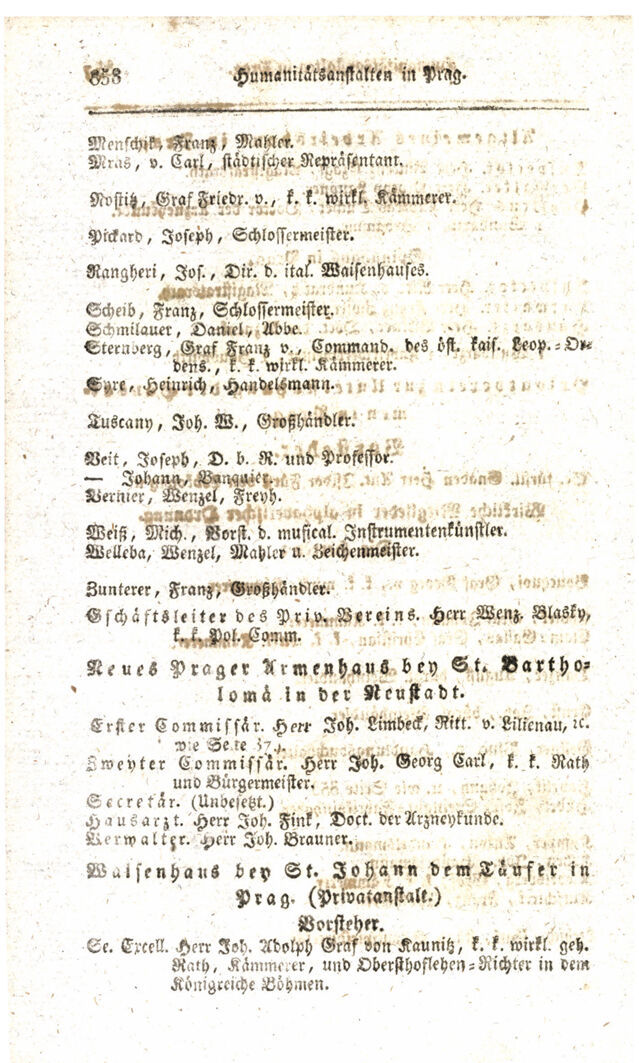 858 Humanitätsanstalten in Prag.
Menschik, Franz, Mahler.
Mras, v. Carl, städtischer Repräsentant.
Nostitz, Graf Friedr. v., k. k. wirkl. Kämmerer.
Pickard, Joseph, Schlossermeister.
Rangheri, Jos., Dir. d. ital. Waisenhauses.
Scheib, Franz, Schlossermeister.
Schmilauer, Daniel, Abbe.
Sternberg, Graf Franz v., Command. des öst. kais. Leop.-Or-
dens., k. k. wirkl. Kämmerer.
Syre, Heinrich, Handelsmann.
Tuscany, Joh. W., Großhändler.
Veit, Joseph, D. b. R. und Professor.
— Johann, Banquier.
Vernier, Wenzel, Freyh.
Weiß, Mich., Vorst. d. musical. Instrumentenkünstler.
Welleba, Wenzel, Mahler u. Zeichenmeister.
Zunterer, Franz, Großhändler.
Gschäftsleiter des Priv. Vereins. Herr Wenz. Blasky,
k. k. Pol. Comm.
Neues Prager Armenhaus bey St. Bartho-
lomä in der Neustadt.
Erster Commissär. Herr Joh. Limbeck, Ritt. v. Lilienau, ꝛc.
wie Seite
Zweyter Commissär. Herr Joh. Georg Carl, k. k. Rath
und Bürgermeister.
Secretär. (Unbesetzt.)
Hausarzt. Herr Joh. Fink, Doct. der Arzneykunde.
Verwalter. Herr Joh. Brauner.
Waisenhaus bey St. Johann dem Täufer in
Prag. (Privatanstalt.)
Vorsteher.
Se. Excell. Herr Joh. Adolph Graf von Kaunitz, k. k. wirkl. geh.
Rath, Kämmerer, und Obersthoflehen-Richter in dem
Königreiche Böhmen.